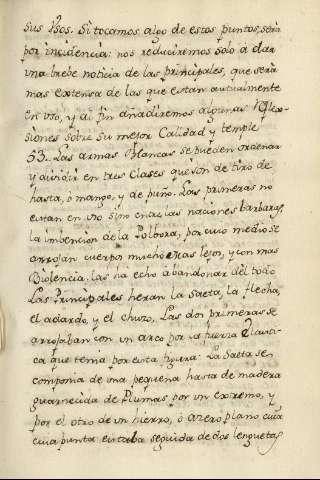 sus Usos. Si tocamos algo de estos puntos, será
por incidencia: nos reduciremos solo a dar
una brebe noticia de las principales, que será
mas extensa de las que estan autualmente
en uso, y al fin añadiremos algunas Reflex-
siones sobre su mejor Calidad y temple
53. Las armas Blancas se pueden ordenar
y dividir en tres Clases que son de tiro de
hasta, ó mango, y de puño. Las primeras no
estan en uso sino entre las naciones barbaras,
la imbencion de la Polbora, por cuio medio se
arrojan cuerpos mucho mas lejos, y con mas
Biolencia, las ha echo abandonar del todo
Las Principales heran la Saeta, la flecha,
el adardo, y el chuzo. Las dos primeras se
arrojaban con un arco por la fuerza Elasti-
ca que tenia por esta figura: La Saeta se
componia de una pequeña hasta de madera
guarnecida de Plumas por un extremo, y
por el otro de un hierro, ó azero plano cuia
cuia punta estaba seguida de dos lenguetas